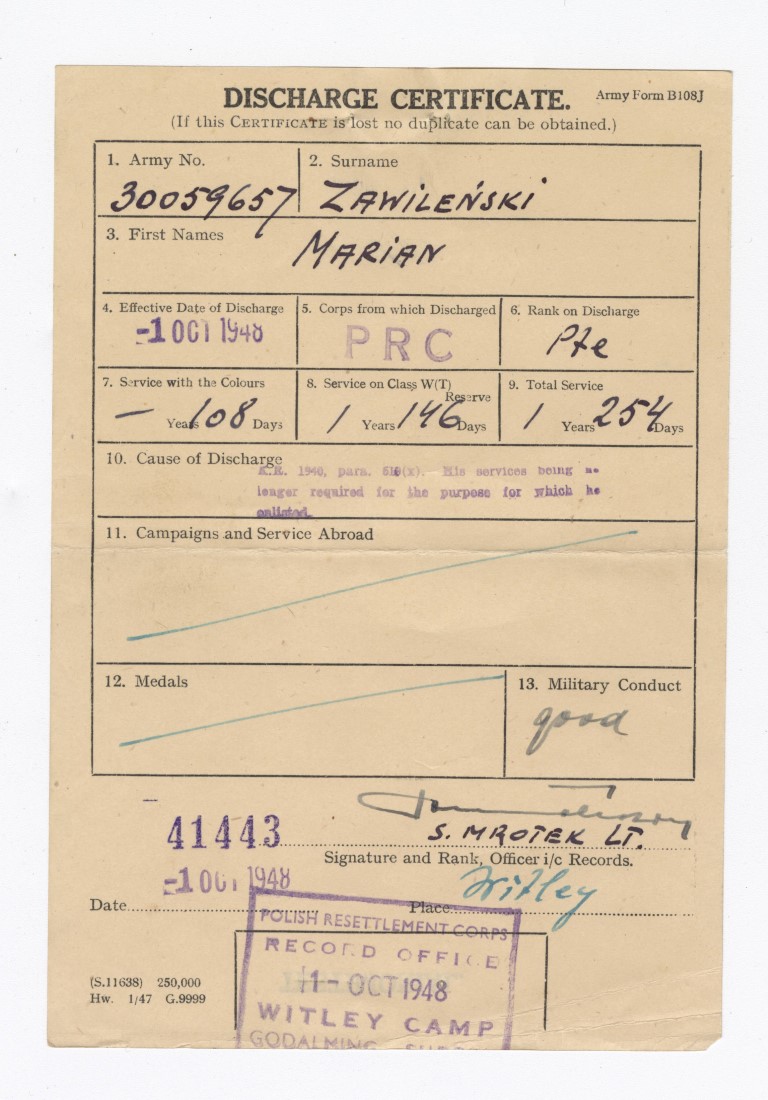 DISCHARGE CERTIFICATE. Army Form B108J
(If this CERTIFICATE is lost no duplicate can be obtained.)
1. Army No. 2. Surname
30059657 ZAWILEŃSKI
3. First Names
MARIAN
4. Effective Date of Discharge 5. Corps from which Discharged 6. Rank on Discharge
-1 OCT 1948 PRC Pte
7. Service with the Colours 8. Service on Class W(T) Reserve 9. Total Service
— Years 108 Days 1 Years 146 Days 1 Years 254 Days
10. Cause of Discharge
K.R. 1940, para. (x). His services being no
longer required for the purpose for which he
enlisted.
11. Campaigns and Service Abroad
12. Medals 13. Military Conduct
good
41443
S. MROTEK LT.
Signature and Rank, Officer i/c Records.
-1 OCT 1948 Witley
Date Place
POLISH RESETTLEMENT CORPS
RECORD OFFICE
1-OCT 1948
WITLEY CAMP
GODALMING
(S.11638) 250,000
Hw. 1/47 G.9999